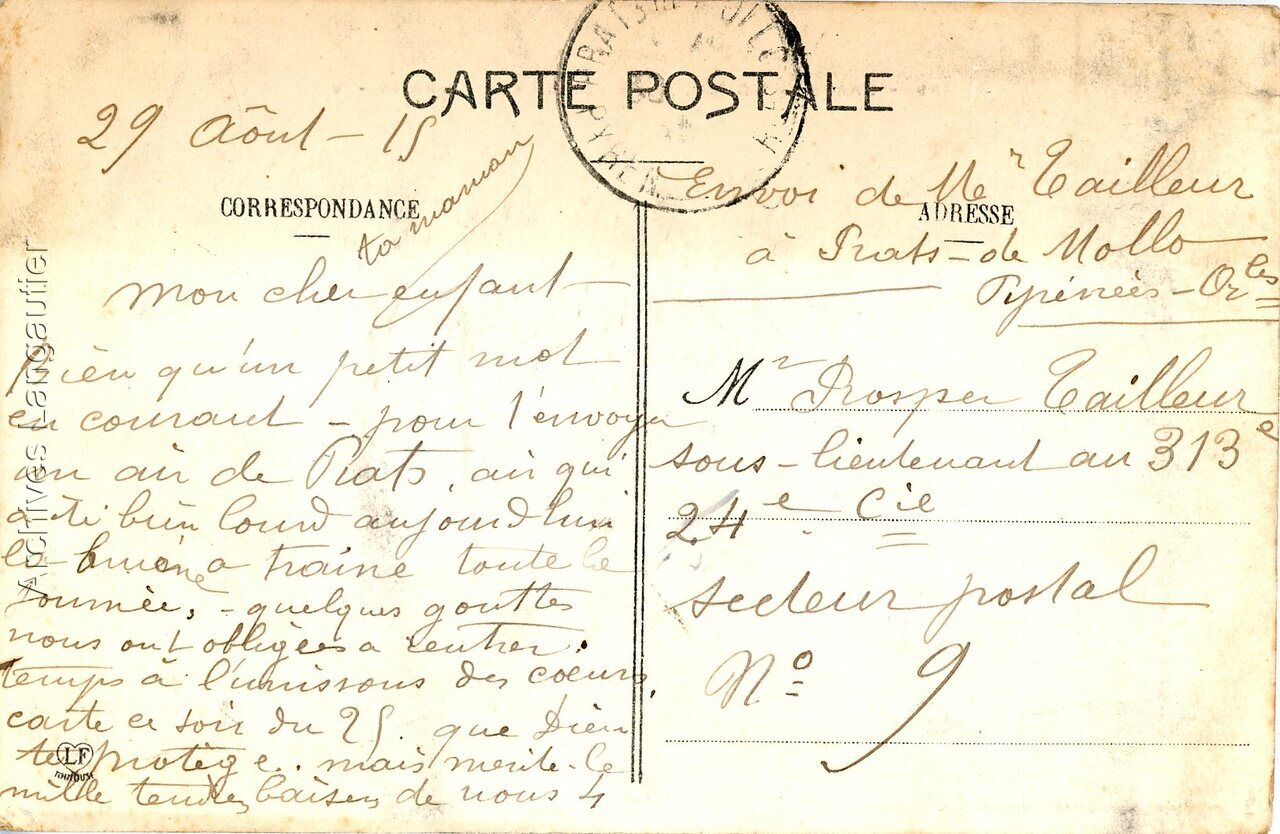 CARTE POSTALE
29 Aôut - 15
CORRESPONDANCE
ta maman
Mon cher enfant
Rien qu'un petit mot
en courant - pour t'envoyer
un air de Prats, air qui
a été bien lourd aujourdhui
la brume a trainé toute la
journée, - quelques gouttes
nous ont obligées a rentrer.
temps à l'unissons des coeurs,
carte ce soir du 25. que Dieu
te protège. mais merite-le
mille tendres baisers de nous 4
LF
TOULOUSE
Envoi de Me Tailleur
ADRESSE
à Prats-de Mollo
Pyrénées-Orles
Mr Prosper Tailleur
sous-lieutenant au 313e
24e Cie
secteur postal
No 9
Archives Langautier